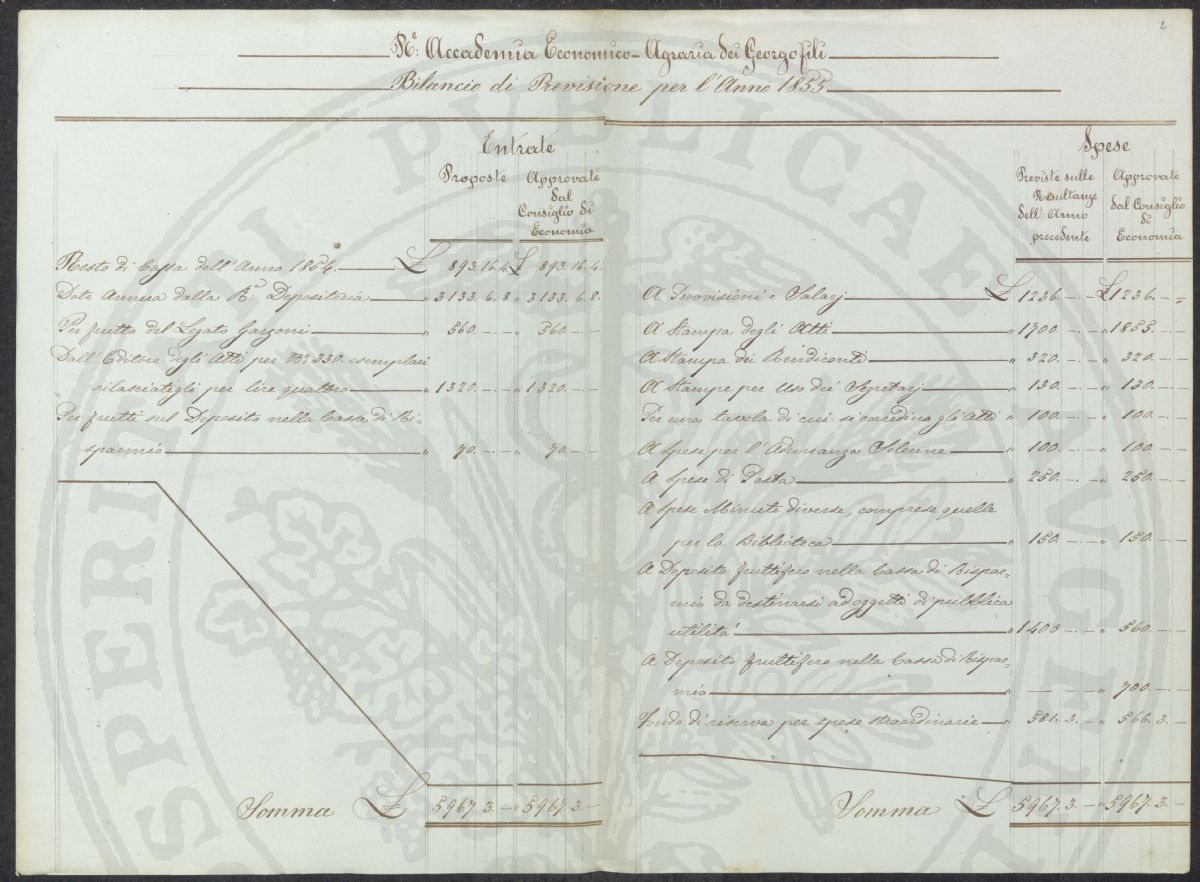 2
R.ª Accademia Economico-Agraria dei Georgofili
Bilancio di Previsione per l'Anno 1855
Entrate
Proposte
Approvate
dal
Consiglio di
Economia
Resto di Cassa dell'Anno 1854. £ 893.16.4. £ 893.16.4.
Dote Annua dalla R.ª Depositeria " 3133.6.8 " 3133.6.8.
Per frutto del Legato Garzoni " 560.-.- " 560.-.-
Dall'Editore degli Atti per N.º 330. esemplari
rilasciatigli per lire quattro " 1320.-.- " 1320.-.-
Per frutti sul Deposito nella Cassa di Ri-
sparmio " 70.-.- " 70.-.-
Somma £ 5967.3.- " 5967.3.-
Spese
Previste sulle
Resultanze
dell'Anno
precedente
Approvate
dal Consiglio
di
Economia
A Provvisioni e Salarj £ 1236.-.- £ 1236.-.-
A Stampa degli Atti " 1700.-.- " 1855.-.-
A Stampa dei Rendiconti " 320.-.- " 320.-.-
A Stampe per Uso dei Segretarj " 130.-.- " 130.-.-
Per una tavola di cui si corredino gli Atti " 100.-.- " 100.-.-
A Spese per l'Adunanza Solenne " 100.-.- " 100.-.-
A Spese di Posta " 250.-.- " 250.-.-
A Spese Minute diverse, comprese quelle
per la Biblioteca " 150.-.- " 150.-.-
A Deposito fruttifero nella Cassa di Rispar=
mio da destinarsi ad oggetti di pubblica
utilità " 1400.-.- " 560.-.-
A Deposito fruttifero nella Cassa di Rispar=
mio " -.-.- " 700.-.-
Fondo di riserva per spese straordinarie " 581.3.- " 566.3.-
Somma £ 5967.3.- " 5967.3.-
PUBLICAE
SPERITATI
AVGE